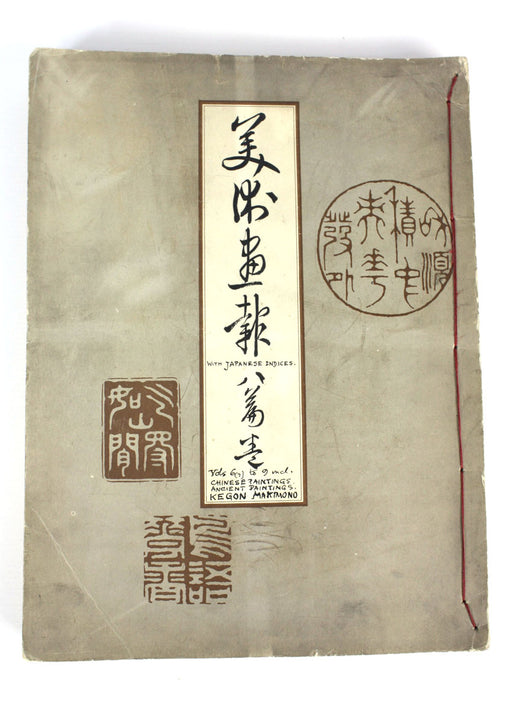 美術畫報
WITH JAPANESE INDICES.
八篇卷
Vols 6(3) to 9 incl.
CHINESE PAINTINGS
ANCIENT PAINTINGS.
KEGON MAKIMONO
和順
積中
英華
發外